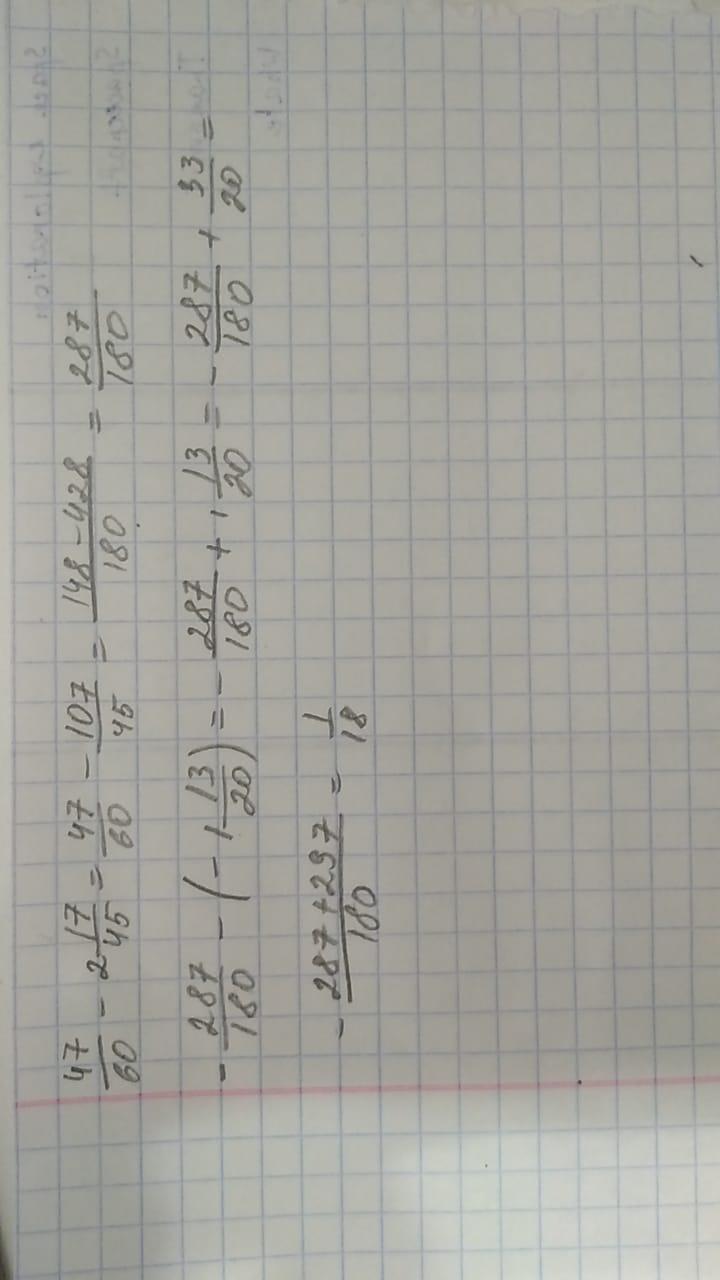 47/60 - 2 17/45 = 47/60 - 107/45 = 148-428/180 = 287/180
- 287/180 - (- 1 13/20) = - 287/180 + 1 13/20 = - 287/180 + 33/20 =
- 287+297/180 = 1/18